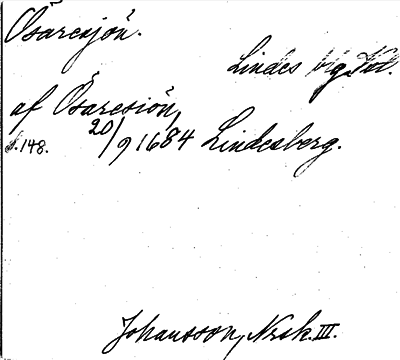 Ösaresjön.
Lindes
af Ösaresiön,
s. 148. 20/9 1684 Lindesberg.
Johansson, Nrsk. III.